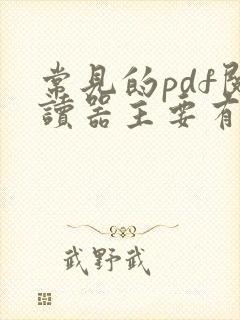 常見的pdf閱
讀器主要有
武野武